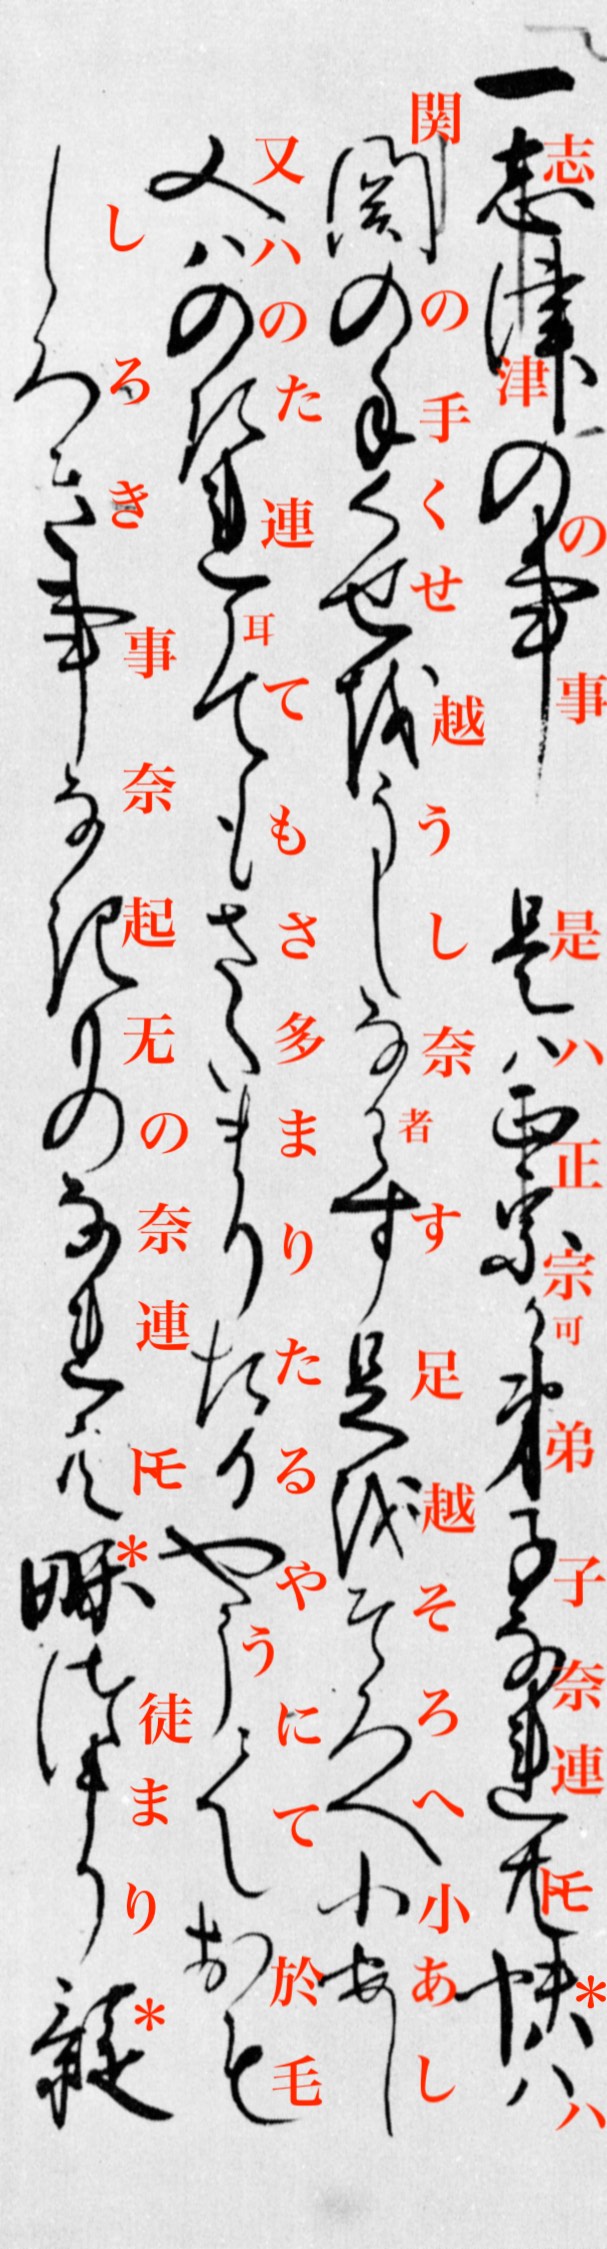 一志津の事 是ハ正宗可弟子奈連𪜈*ハ
関の手くせ越うし奈者す足越そろへ小あし
又ハのた連耳てもさ多まりたるやうにて於毛
しろき事奈起无の奈連𪜈*徒まり*